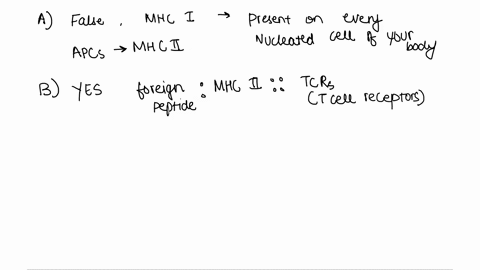 A) False. MHC I → Present on every
Nucleated cell of your body
APCs → MHC II
B) YES foreign peptide : MHC II :: TCRs
(T cell receptors)